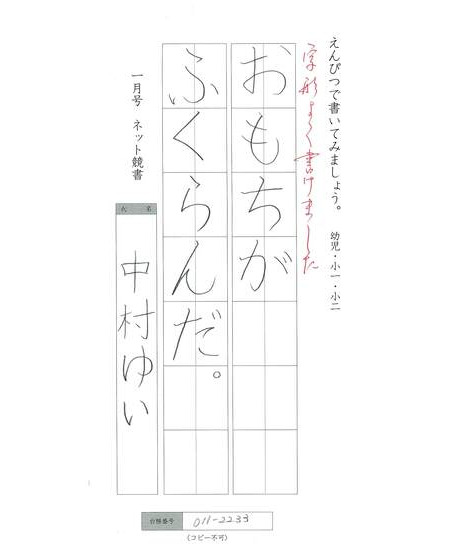 えんぴつで書いてみましょう。 幼児・小一・小二
字形よく書けました
おもちが
ふくらんだ。
一月号 ネット競書
氏名
中村ゆい
台帳番号 011-2233
(コピー不可)